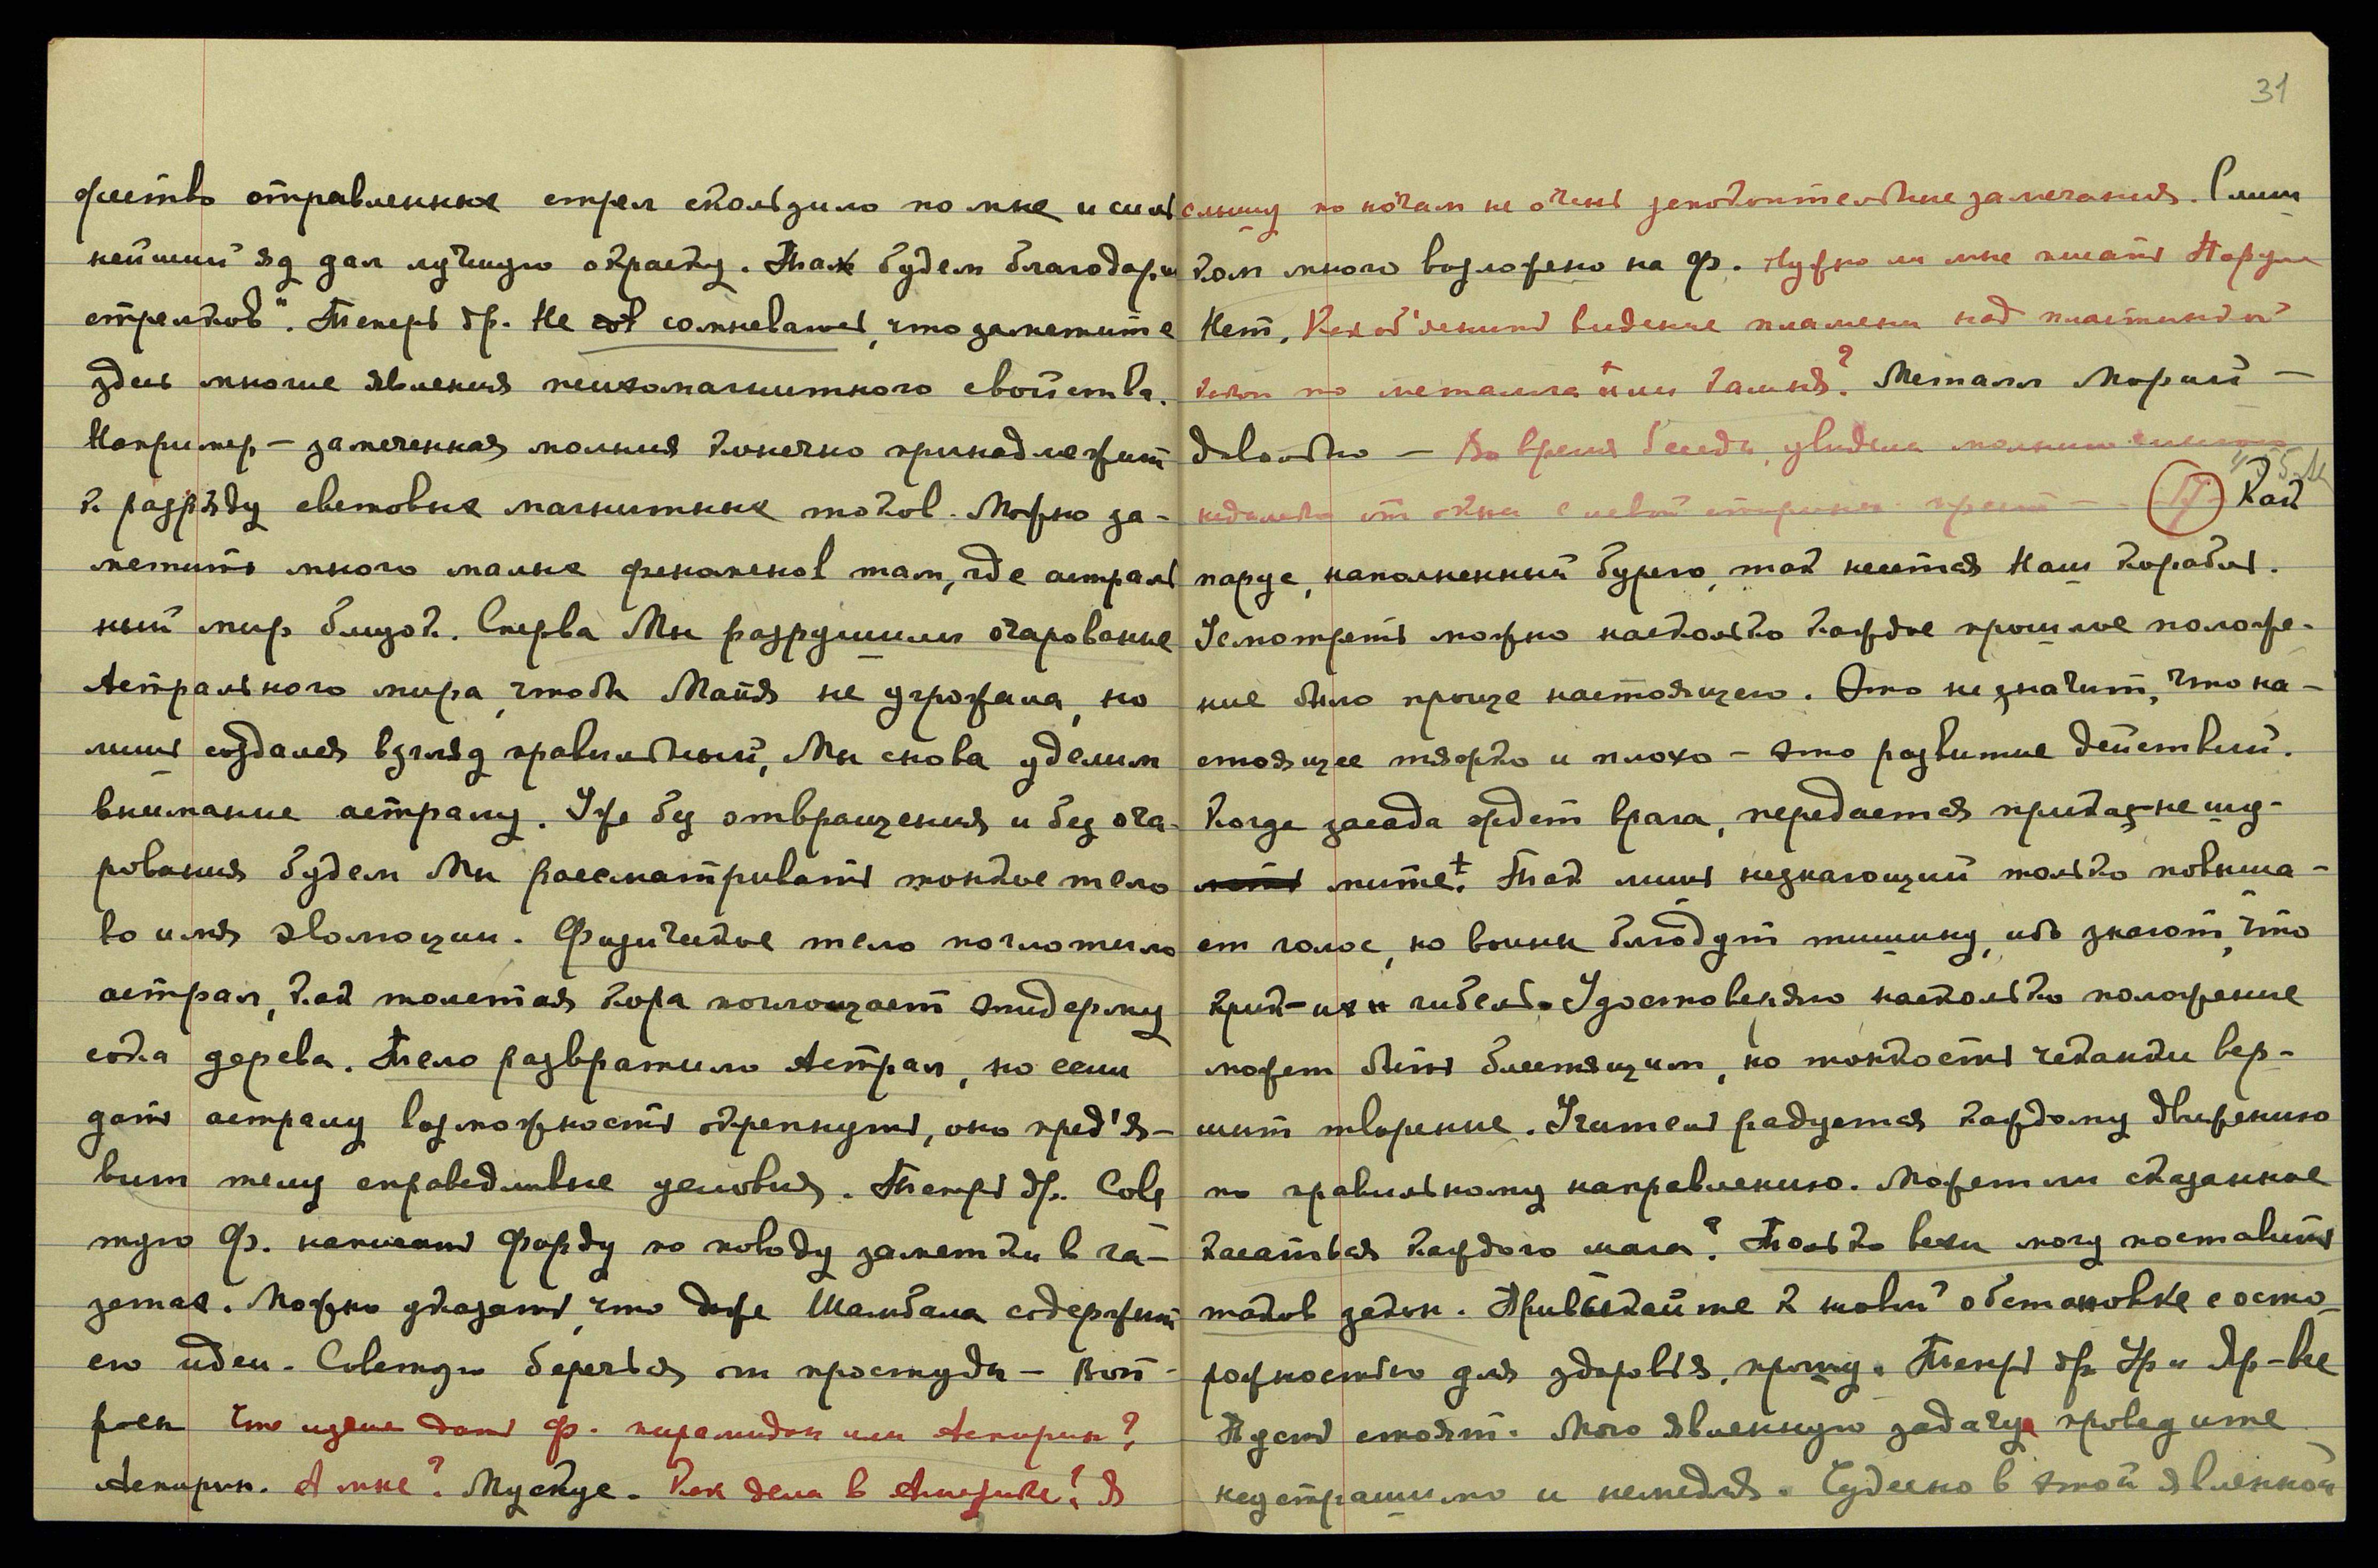 жество отравленных стрел скользило по мне и силь
нейший яд дал лучшую окраску. Так будем благодарить
стрелков". Теперь др. Не сомневаюсь, что заметите
здесь многие явления психомагнитного свойства.
Например — замеченная молния конечно принадлежит
к разряду световых магнитных токов. Можно за-
метить много малых феноменов там, где астраль
ный мир близок. Сперва Мы разрушили очарование
Астрального мира, чтобы Майя не угрожала, но
лишь создался взгляд правильный, Мы снова уделим
внимание астралу. Уже без отвращения и без оча-
рования будем Мы рассматривать тонкое тело
во имя эволюции. Физическое тело поглотило
астрал, как толстая кора поглощает эпидерму
сока дерева. Тело развратило Астрал, но если
дать астралу возможность окрепнуть, оно пред'я-
вит телу справедливые условия. Теперь др. Сове
тую Ф. написать Форду по поводу заметки в га-
зетах. Можно указать, что даже Шамбала содержит
его идеи. Советую беречься от простуды —
Что лучше дать Ф. пирамидон или Аспирин?
Аспирин. А мне? Мускус. Как дела в Америке? Я
31
слышу по ночам не очень успокоительные замечания. Слиш
ком много возложено на Ф. Нужно ли мне писать
Нет. Как об'яснить видение пламени над пластинкой
по металла или камня? Металл Морий —
довольно — Во время беседы увидела молнию
недалеко от окна с левой стороны — 17 Как
парус, наполненный бурею, так несется Наш корабль.
Усмотреть можно насколько каждое прошлое положе-
ние было проще настоящего. Это не значит, что на-
стоящее тяжко и плохо — это развитие действий.
Когда засада ждет врага, передается приказ — не шу-
мите! Так лишь незнающий только повыша-
ет голос, но воины блюдут тишину, ибо знают, что
крик — их гибель. Удостоверяю насколько положение
может быть блестящим, но тонкость чеканки вер-
шит творение. Учитель радуется каждому движению
по правильному направлению. Может ли сказанное
касаться каждого шага? Только вехи могу поставить
таков закон. Привыкайте к новой обстановке с осто-
рожностью для здоровья, прошу. Теперь др. Ур. и Яр — все
Пусть стоят. Мою явленную задачу проведите
неустрашимо и немедля. Чудесно в этой явленной